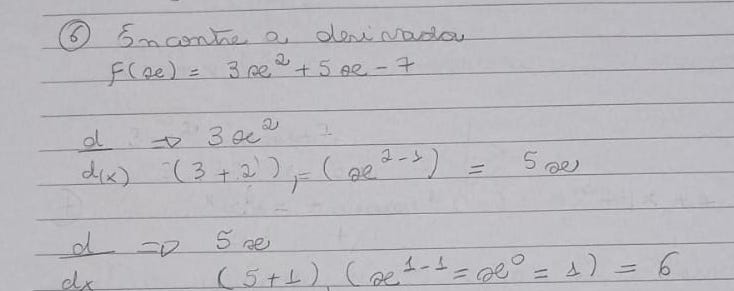 ⑥ Encontre a derivada
F(x) = 3x² + 5x - 7
d/d(x) ⇒ 3x²
(3 + 2), = (x²⁻¹) = 5x
d/dx ⇒ 5x
(5+1) (x¹⁻¹ = x⁰ = 1) = 6